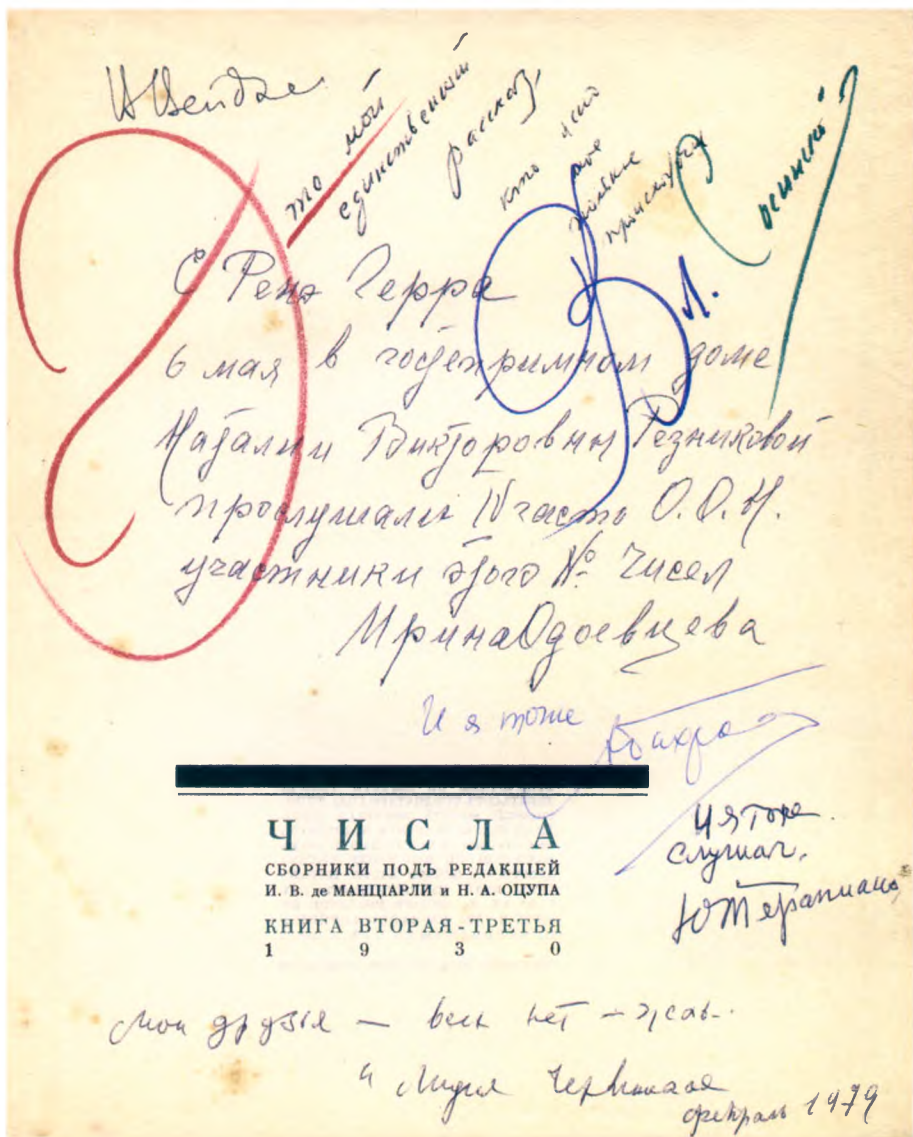 то мой
единственный
рассказ,
С Ренэ Герра
6 мая в гостеприимном доме
Наталии Викторовны Резниковой
прослушали IV часть О.О.Н.
участники этого № Чисел
Ирина Одоевцева
И я тоже
И я тоже
слушал.
Ю Терапиано
ЧИСЛА
СБОРНИКИ ПОДЪ РЕДАКЦІЕЙ
И. В. де МАНЦІАРЛИ и Н. А. ОЦУПА
КНИГА ВТОРАЯ-ТРЕТЬЯ
1930
Мои друзья — вас нет —
Лидия Червинская
февраль 1979